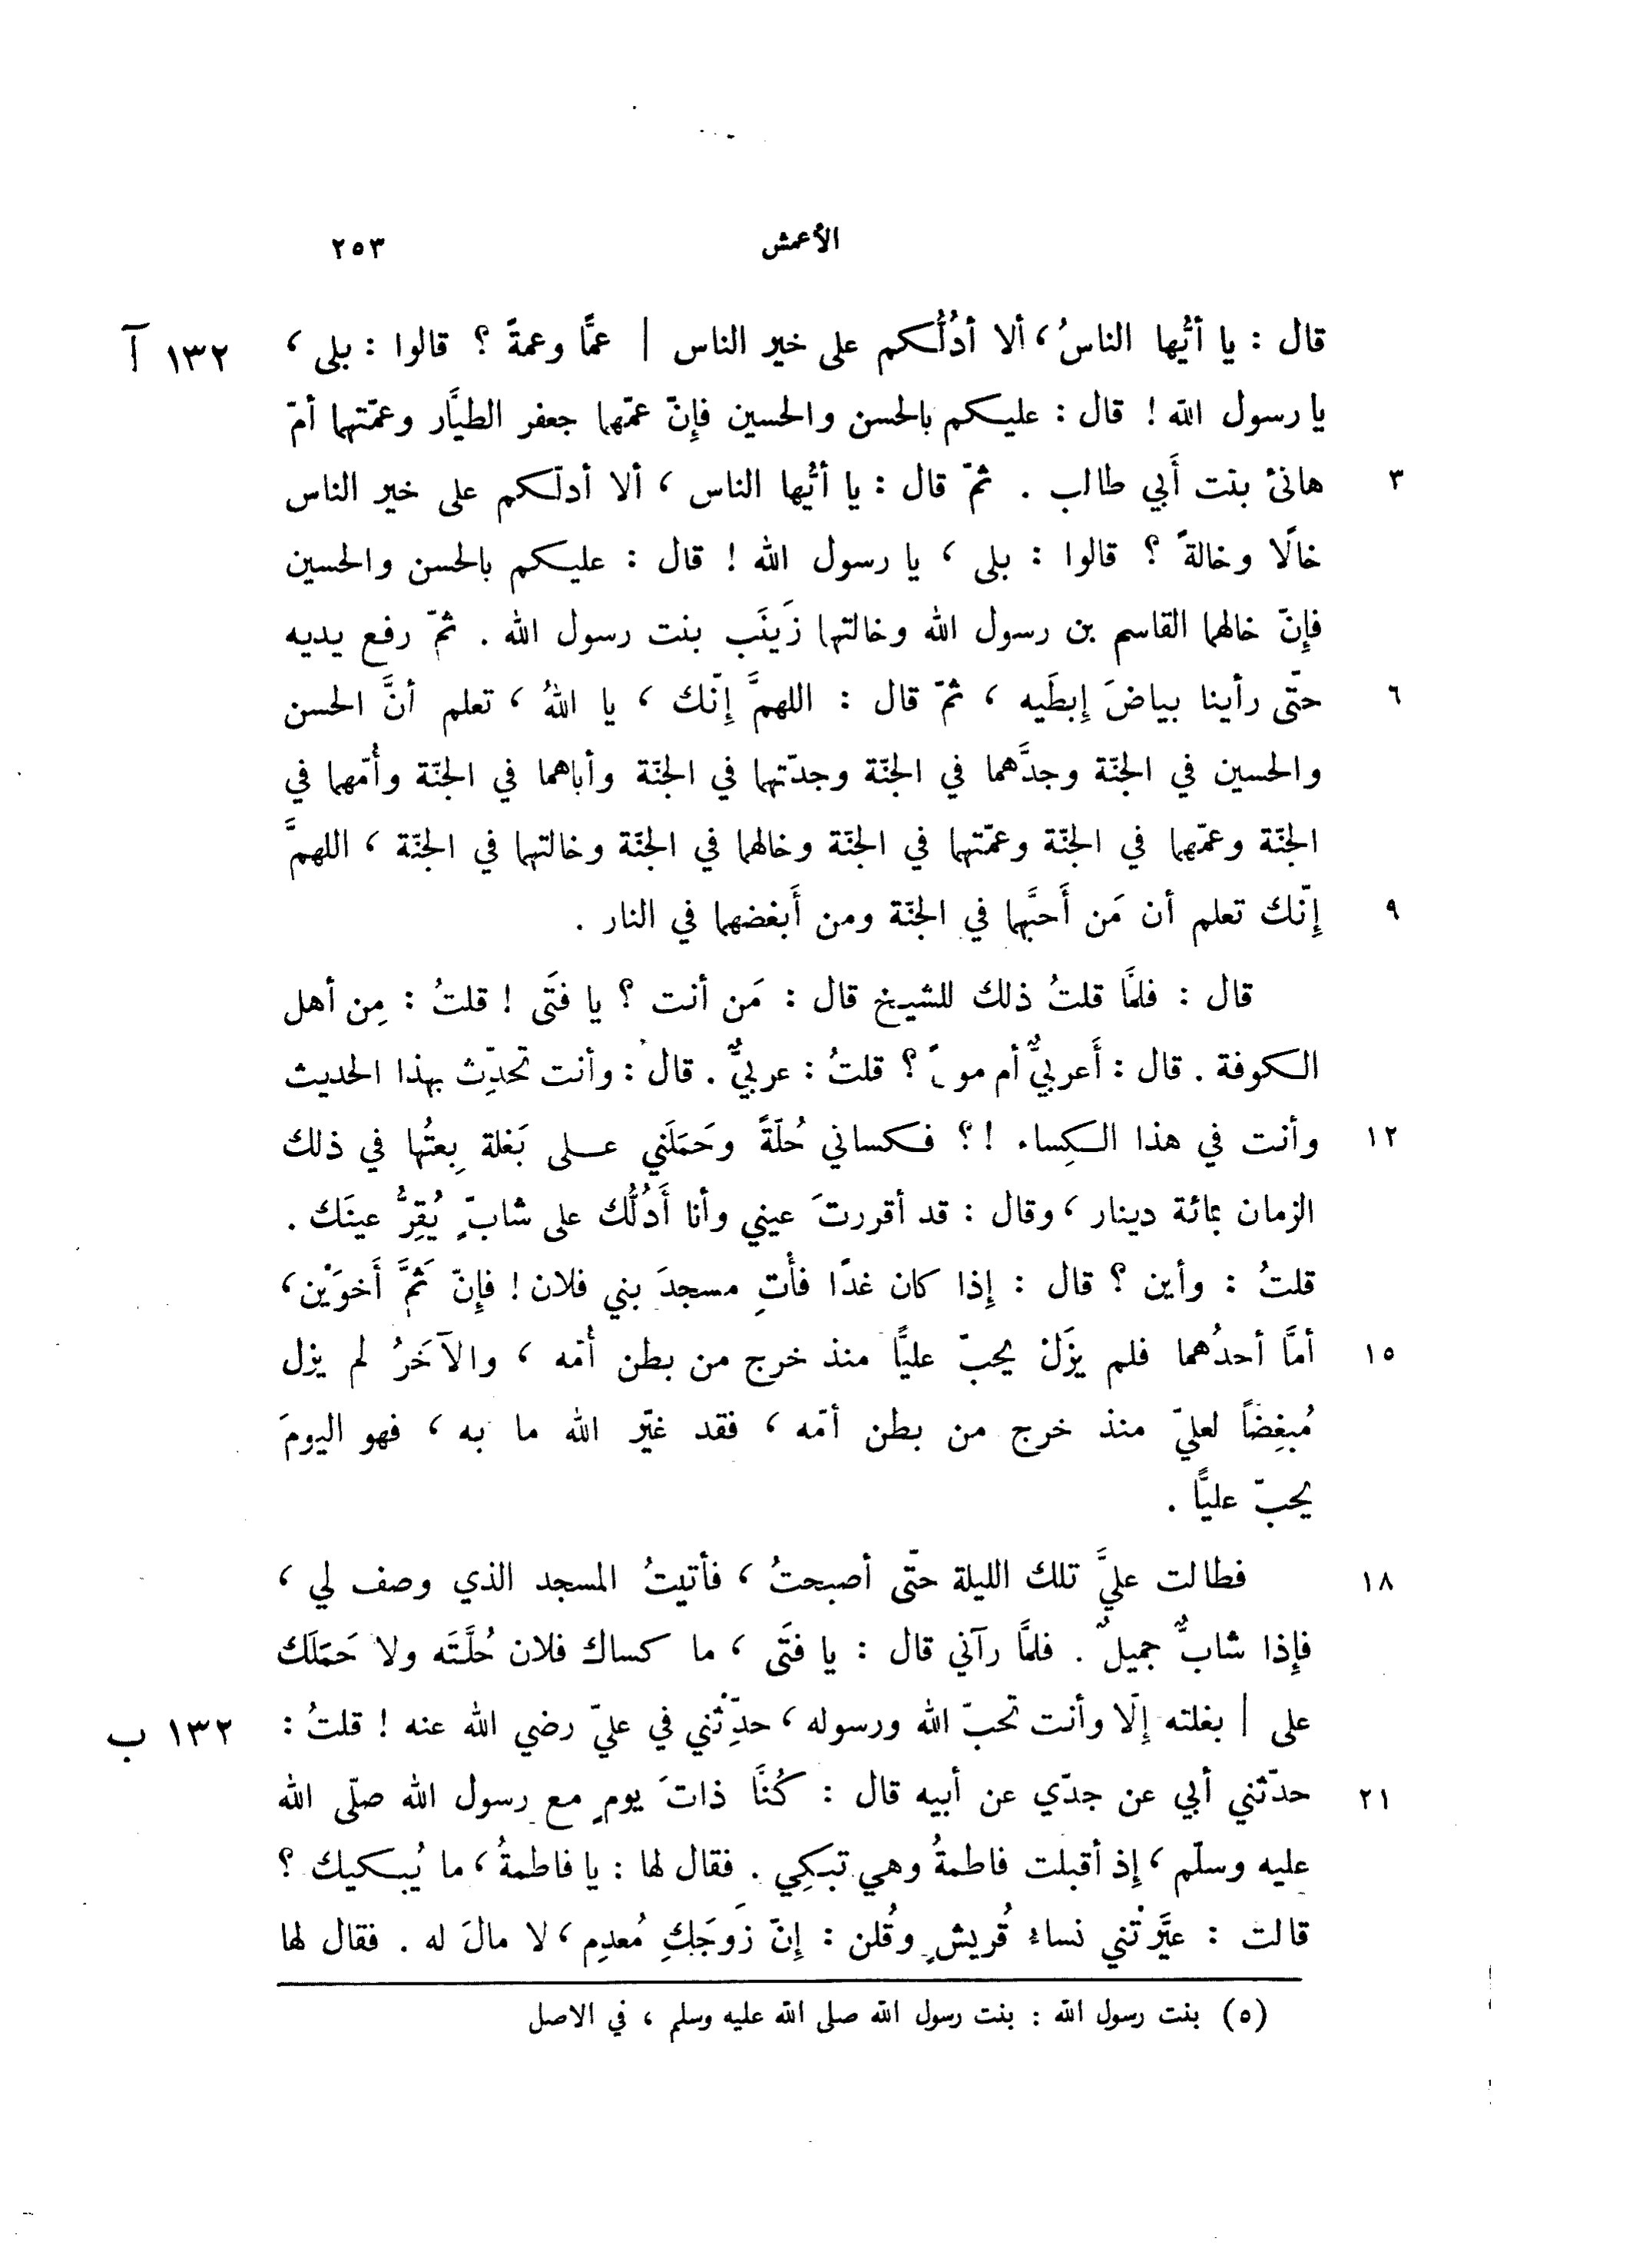 الأعمش ٢٥٣
قال : يا أيُّها الناسُ ، ألا أدُلُّكم على خير الناس | عمًّا وعمةً ؟ قالوا : بلى ، ١٣٢ آ
يا رسول الله ! قال : عليكم بالحسن والحسين فإنّ عمّهما جعفر الطيَّار وعمّتهما أمّ
٣ هانئ بنت أَبي طالب . ثمّ قال : يا أيُّها الناس ، ألا أدلّكم على خير الناس
خالًا وخالةً ؟ قالوا : بلى ، يا رسول الله ! قال : عليكم بالحسن والحسين
فإنّ خالهما القاسم بن رسول الله وخالتهما زَينَب بنت رسول الله . ثمّ رفع يديه
٦ حتّى رأينا بياضَ إبطَيه ، ثمّ قال : اللهمَّ إنّك ، يا اللهُ ، تعلم أنَّ الحسن
والحسين في الجنّة وجدَّهما في الجنّة وجدّتهما في الجنّة وأباهما في الجنّة وأُمّهما في
الجنّة وعمّهما في الجنّة وعمّتهما في الجنّة وخالهما في الجنّة وخالتهما في الجنّة ، اللهمَّ
٩ إنّك تعلم أن مَن أَحبَّهما في الجنّة ومن أَبغضهما في النار .
قال : فلمَّا قلتُ ذلك للشيخ قال : مَن أنت ؟ يا فتَى ! قلتُ : مِن أهل
الكوفة . قال : أَعربيٌّ أم مو ؟ قلتُ : عربيٌّ . قال : وأنت تحدِّث بهذا الحديث
١٢ وأنت في هذا الكِساء ! ؟ فكساني حُلّةً وحَمَلَني على بَغلة بِعتُها في ذلك
الزمان بمائة دينار ، وقال : قد أقررتَ عيني وأنا أَدُلُّك على شابّ ٍ يُقِرُّ عينَك .
قلتُ : وأين ؟ قال : إذا كان غدًا فأْتِ مسجدَ بني فلان ! فإنّ ثَمَّ أَخوَيْن ،
١٥ أمَّا أحدُهما فلم يزَلْ يحبّ عليًّا منذ خرج من بطن أُمّه ، والآخَرُ لم يزل
مُبغِضاً لعليّ منذ خرج من بطن أمّه ، فقد غيّر الله ما به ، فهو اليومَ
يحبّ عليًّا .
١٨ فطالت عليَّ تلك الليلة حتّى أصبحتُ ، فأتيتُ المسجد الذي وصف لي ،
فإذا شابٌّ جميلٌ . فلمَّا رآني قال : يا فتَى ، ما كساك فلان حُلَّتَه ولا حَمَلَك
على | بغلته إلّا وأنت تحبّ الله ورسوله ، حدِّثْني في عليّ رضي الله عنه ! قلتُ : ١٣٢ ب
٢١ حدّثني أبي عن جدّي عن أبيه قال : كُنَّا ذاتَ يومٍ مع رسول الله صلّى الله
عليه وسلّم ، إذ أقبلت فاطمةُ وهي تبكي . فقال لها : يا فاطمةُ ، ما يُبكيك ؟
قالت : عيَّرتْني نساءُ قُريشٍ وقُلن : إنّ زَوجَكِ مُعدِم ، لا مالَ له . فقال لها
(٥) بنت رسول الله : بنت رسول الله صلى الله عليه وسلم ، في الاصل